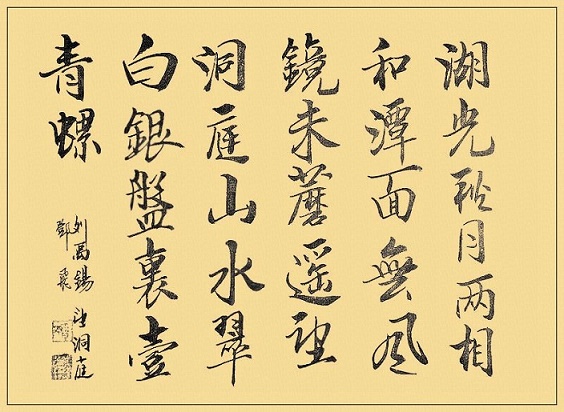 湖光秋月两相
和潭面無風
鏡未蘑遥望
洞庭山水翠
白銀盤裏壹
青螺
刘禹錫 望洞庭
鄧